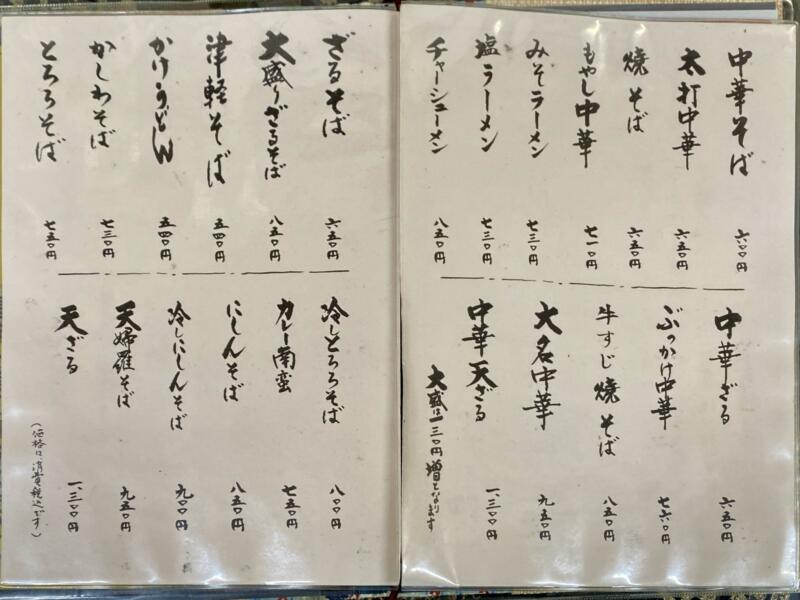 中華そば 六〇〇円
太打中華 六五〇円
焼そば 六五〇円
もやし中華 七一〇円
みそラーメン 七三〇円
塩ラーメン 七三〇円
チャーシューメン 八五〇円
中華ざる 六五〇円
ぶっかけ中華 七六〇円
牛すじ焼そば 八五〇円
大名中華 九五〇円
中華天ざる 一、三〇〇円
大盛は一三〇円増となります
ざるそば 六五〇円
大盛りざるそば 八五〇円
津軽そば 五四〇円
かけうどん 五四〇円
かしわそば 七三〇円
とろろそば 七五〇円
冷しとろろそば 八〇〇円
カレー南蛮 七五〇円
にしんそば 八五〇円
冷しにしんそば 九〇〇円
天婦羅そば 九五〇円
天ざる 一、三〇〇円
(価格は消費税込です)